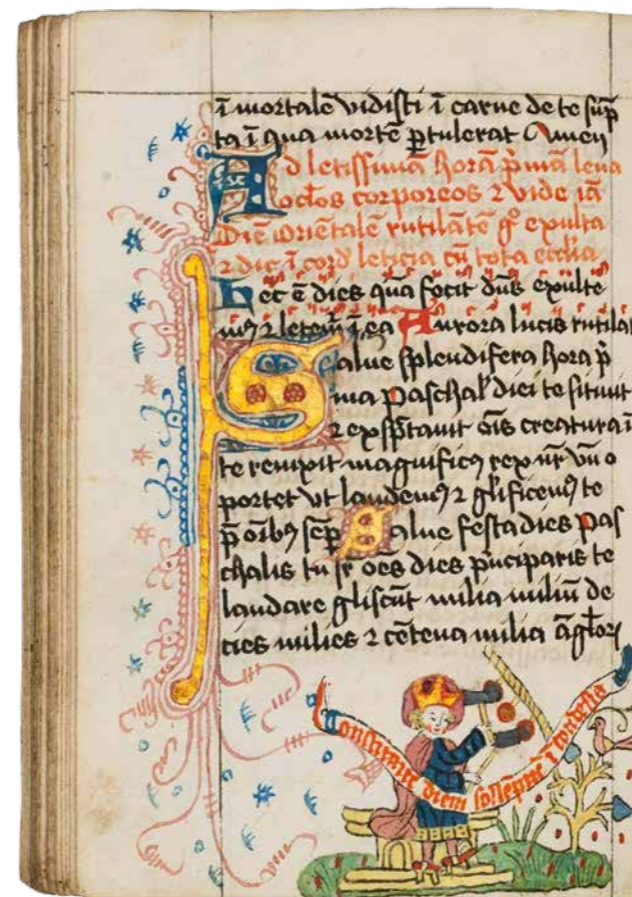 ī mortalē vidisti ī carne de te sūp
ta ī qua mortē ꝑtulerat Amen
Ad letissimā horā p̄mā leua
oc̄los corporeos ⁊ vide iā
Diē orientalē rutilātē gͦ exulta
⁊ dic ī cord̕ leticia cū tota ecc̄lia
Hec ē dies quā fecit dn̄s exulte
mꝰ ⁊ letem̄ ī ea Aurora lucis rutilat
Salue splendifera hora p̄
ma paschal̕ diei te sitiuit
⁊ exspc̄tauit oīs creatura ī
te rempit magnificꝰ rex nr̄ vn̄ o
portet vt laudemꝰ ⁊ gl̄ificemꝰ te
p̄ oībꝰ semꝑ Salue festa dies pas
chalis tu sr̄ oēs dies p̄nciparis te
laudare gliscūt milia miliū de
cies milies ⁊ cētena milia āgl̄oꝝ
Constituite diem sollēpnē ī